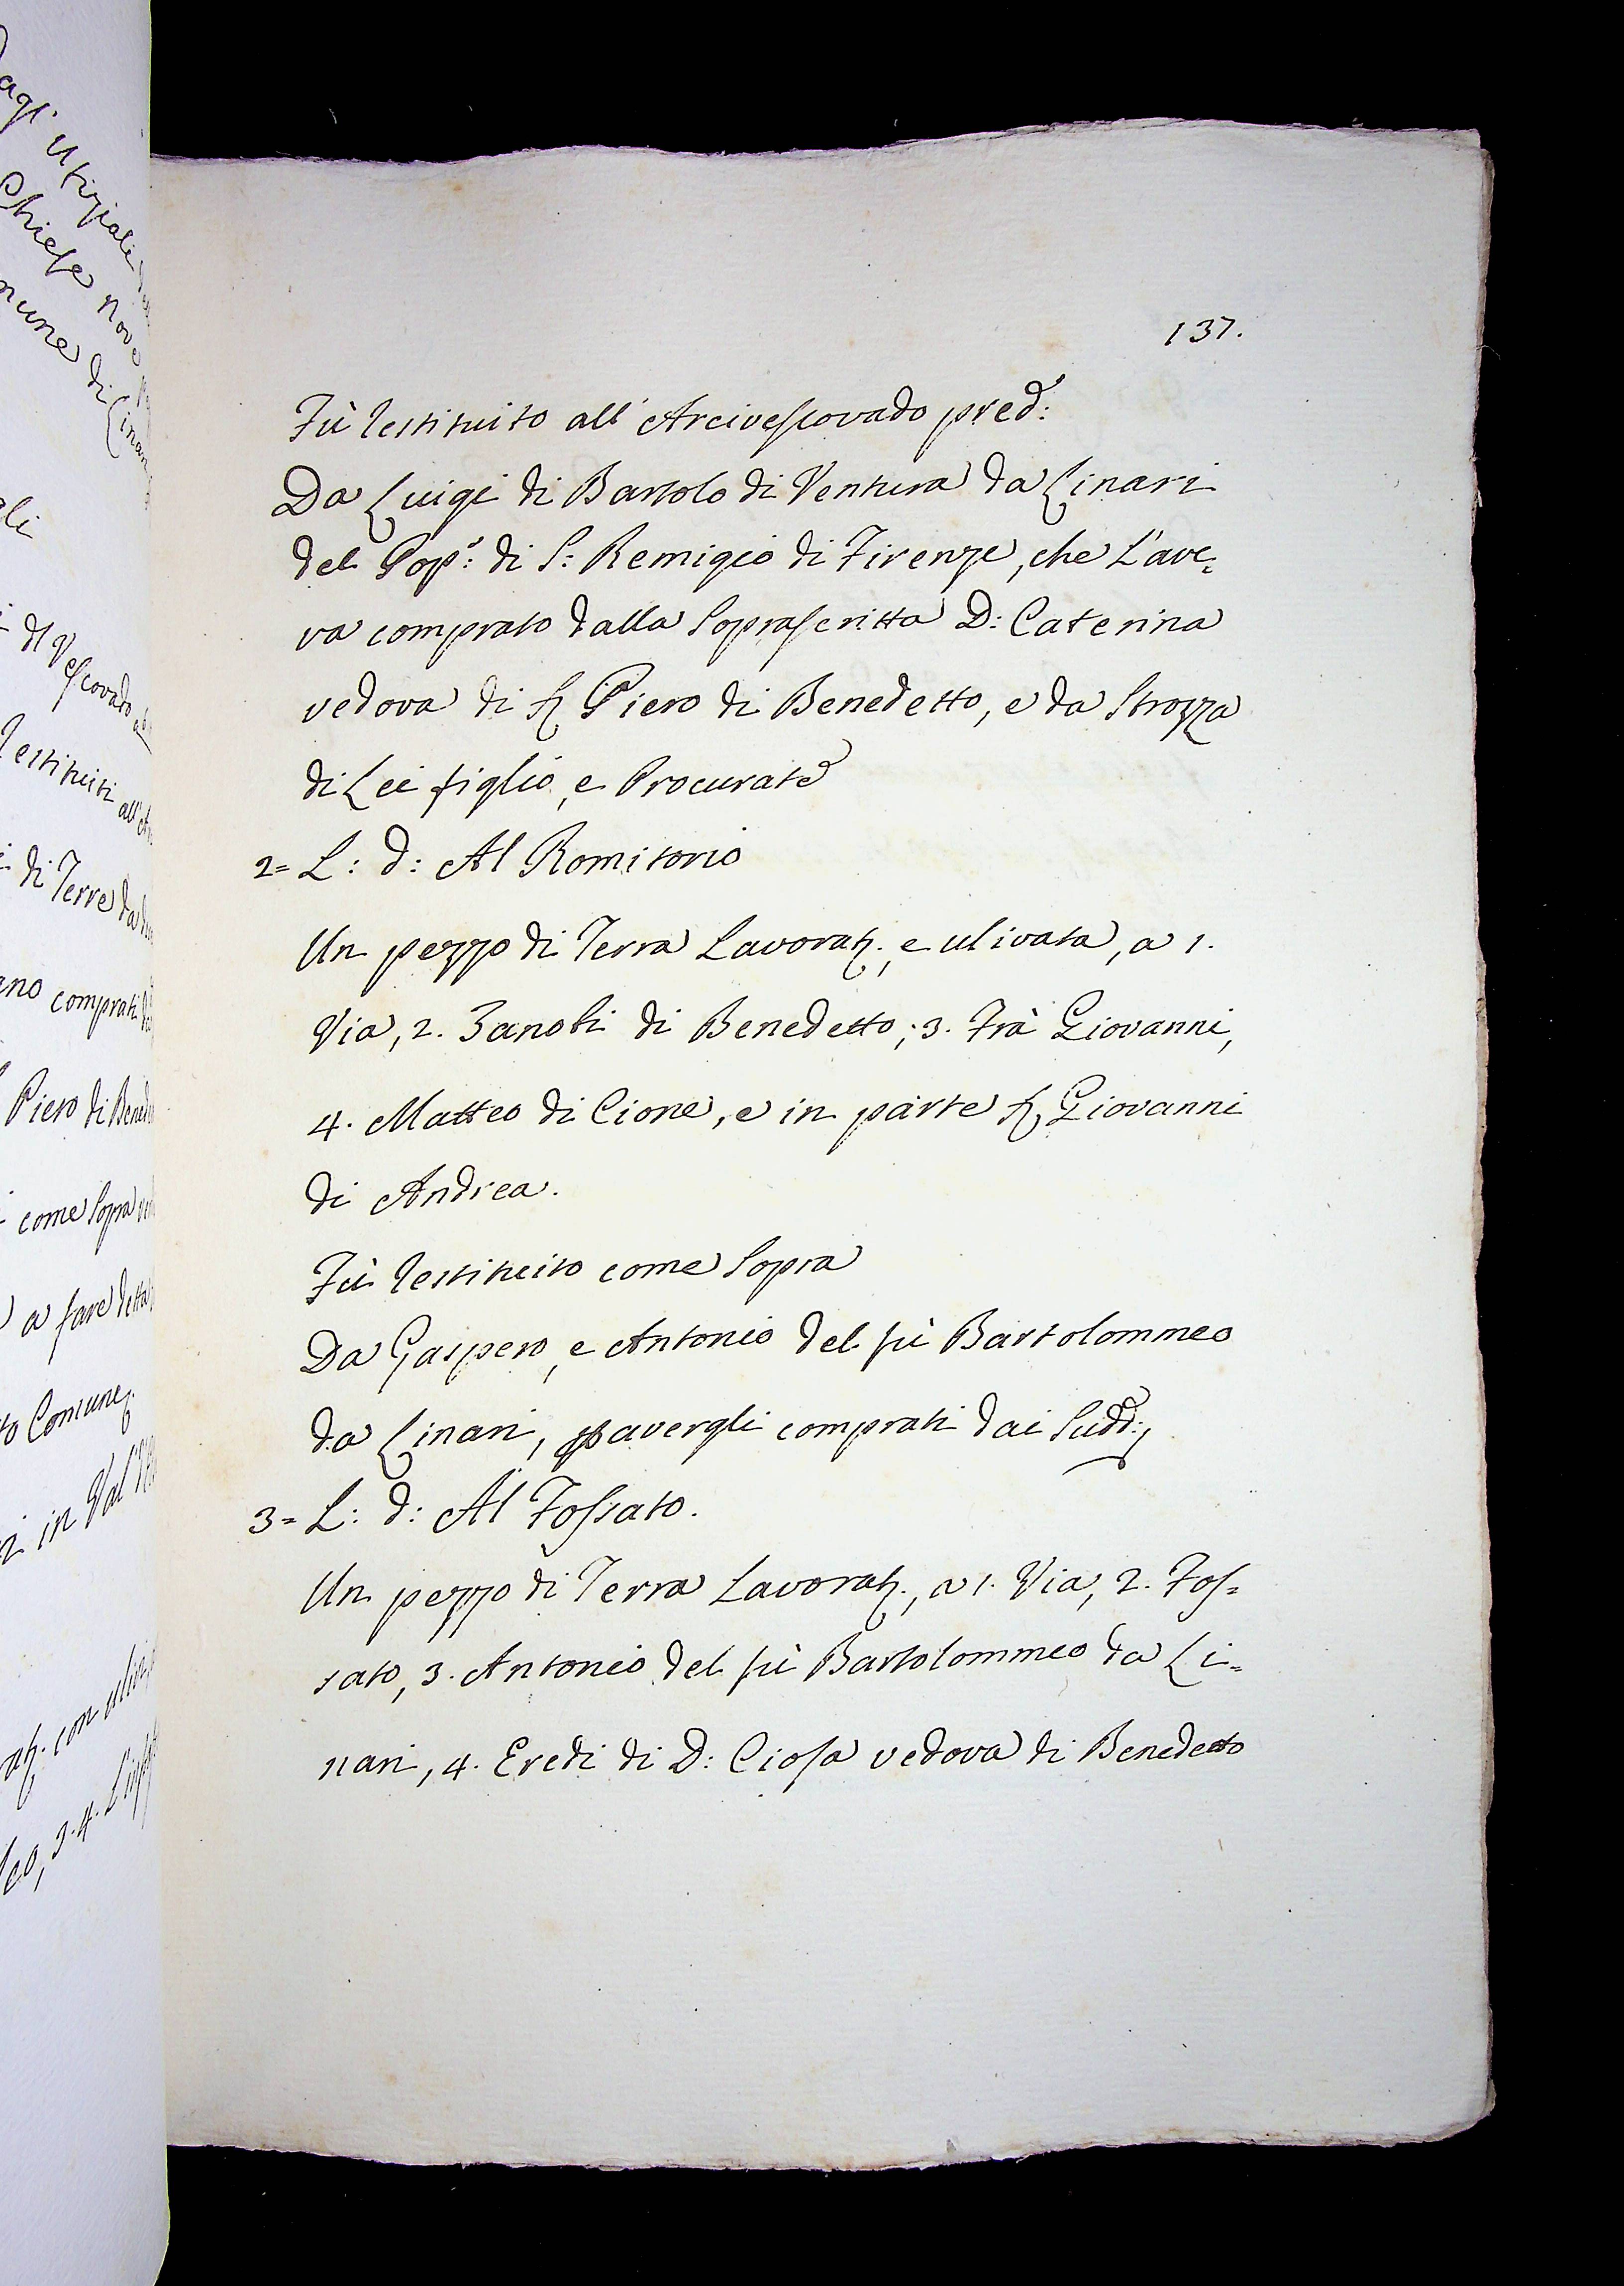 agl' Ufiziali
Chiese nove
mune di Linari
gli
di Vescovado
restituiti all'
di Terre da
ano comprati
Piero di Bened
come sopra
a fare detta
to Comune
in Val
con
3. 4.
137.
Fù restituito all'Arcivescovado pred:
Da Luigi di Bartolo di Ventura da Linari
del Pop:° di S: Remigio di Firenze, che l'ave=
va comprato dalla soprascritta D: Caterina
vedova di Piero di Benedetto, e da Strozza
di Lei figlio, e Procurat:e
2= L: d: Al Romitorio
Un pezzo di Terra Lavorat:, e ulivata, a 1.
Via, 2. Zanobi di Benedetto; 3. Frà Giovanni,
4. Matteo di Cione, e in parte Giovanni
di Andrea.
Fù restituito come sopra
Da Gaspero, e Antonio del fù Bartolommeo
da Linari, p avergli comprati dai Sudd:i
3= L: d: Al Fossato.
Un pezzo di Terra Lavorat:, a 1. Via, 2. Fos=
sato, 3. Antonio del fù Bartolommeo da Li=
nari, 4. Eredi di D: Ciosa vedova di Benedetto